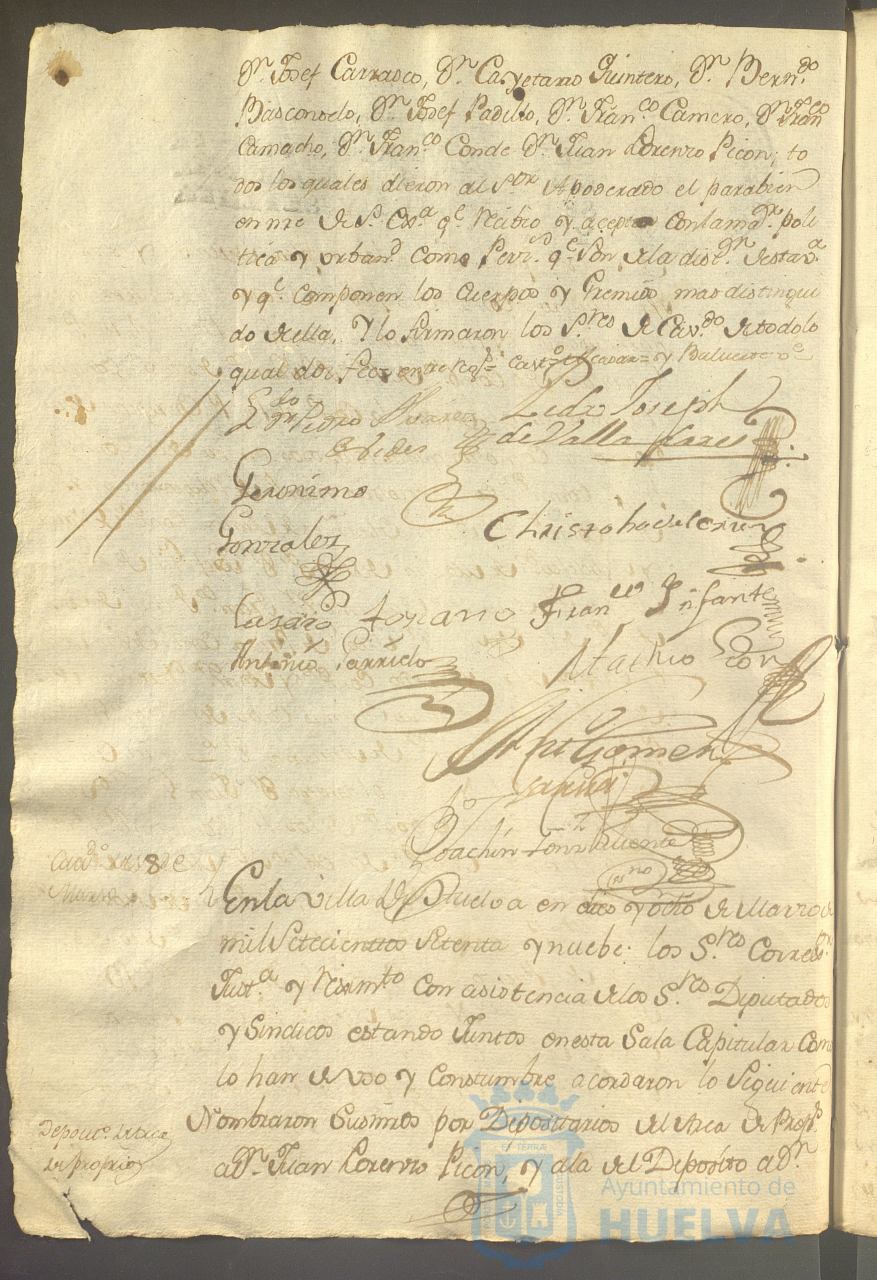 Dn. Josef Carrasco, Dn. Cayetano Quintero, Dn. Berndo.
Basconselo, Dn. Josef Padilla, Dn. Franco. Camero, Dn. Franco
Camacho, Dn. Franco. Conde Dn. Juan Lorenzo Picon; to
dos los quales dieron al Sor. Apoderado el parabien
en nre de S. Exa. qe. recibio y acepto con la maor. poli
tica y urband. como
y qe. componen los Cuerpos y Gremios mas distingui
do de ella, Y lo firmaron los Sres de Cavdo. de todo lo
qual doi fee=
Ldo Dn Pedro Alvarez
Pedro Joseph
de Valladares
Geronimo
Gonzales
Christobal
Lazaro Franco Infante
Antonio Garrido
Mathio
Antto Gomez
Garcia
Joachin
Cavdo. de 18 de
Marzo
En la Villa de Huelva en dies y ocho de Marzo de
mil setecientos setenta y nuebe: los Sres Correxor.
Justa. y Reximto con asistencia de los Sres Diputados
y Sindicos estando Juntos en esta Sala Capitular Como
lo han de uso y Constumbre acordaron lo Siguiente
Deposito. de Arca
de Propios
Nombraron Susmrds por Dipositarios del Arca de Props.
a Dn. Juan Lorenzo Picon, y a la del Deposito a Dn.
Ayuntamiento de
HUELVA